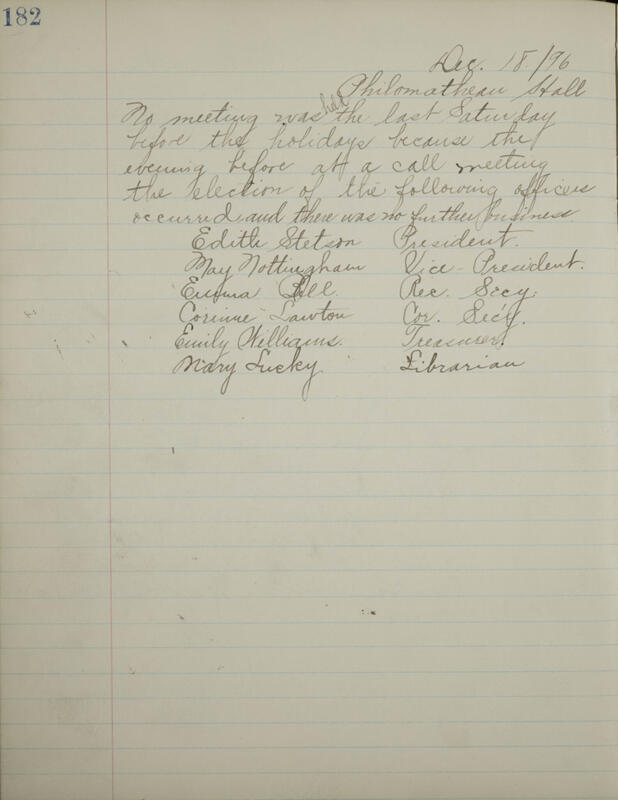 182
Dec. 18/96
Philomathean Hall
No meeting was held the last Saturday
before the holidays because the
evening before at a call meeting
the election of the following officers
occurred and there was no further business
Edith Stetson President.
May Nottingham Vice-President.
Emma Rec. Secy.
Corinne Lawton Cor. Sec'y.
Emily Williams. Treasurer.
Mary Lucky Librarian